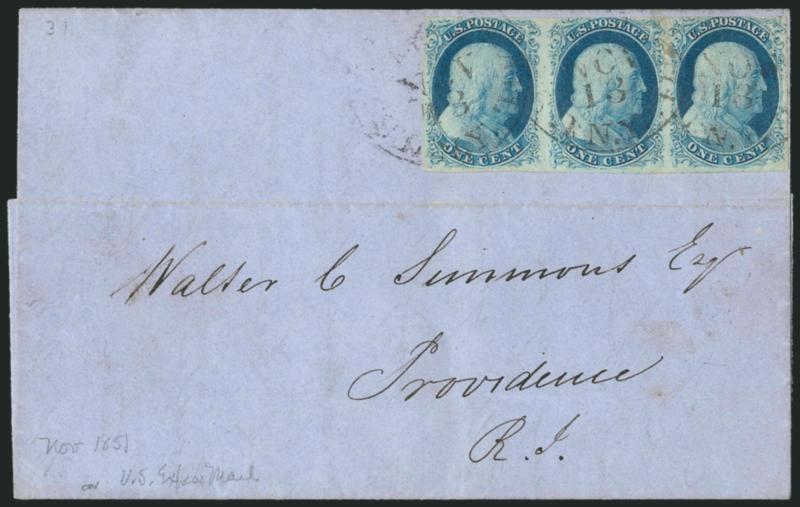 31
U.S. POSTAGE U.S. POSTAGE U.S. POSTAGE
NOV NOV
13 13 13
N.Y. N.Y. N.Y.
ONE CENT ONE CENT ONE CENT
Walter C Simmons Esq
Providence
R. I.
Nov 1851
on U.S. Express Mail